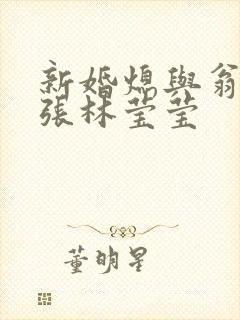 新婚熄與翁
張林莹莹
董明星